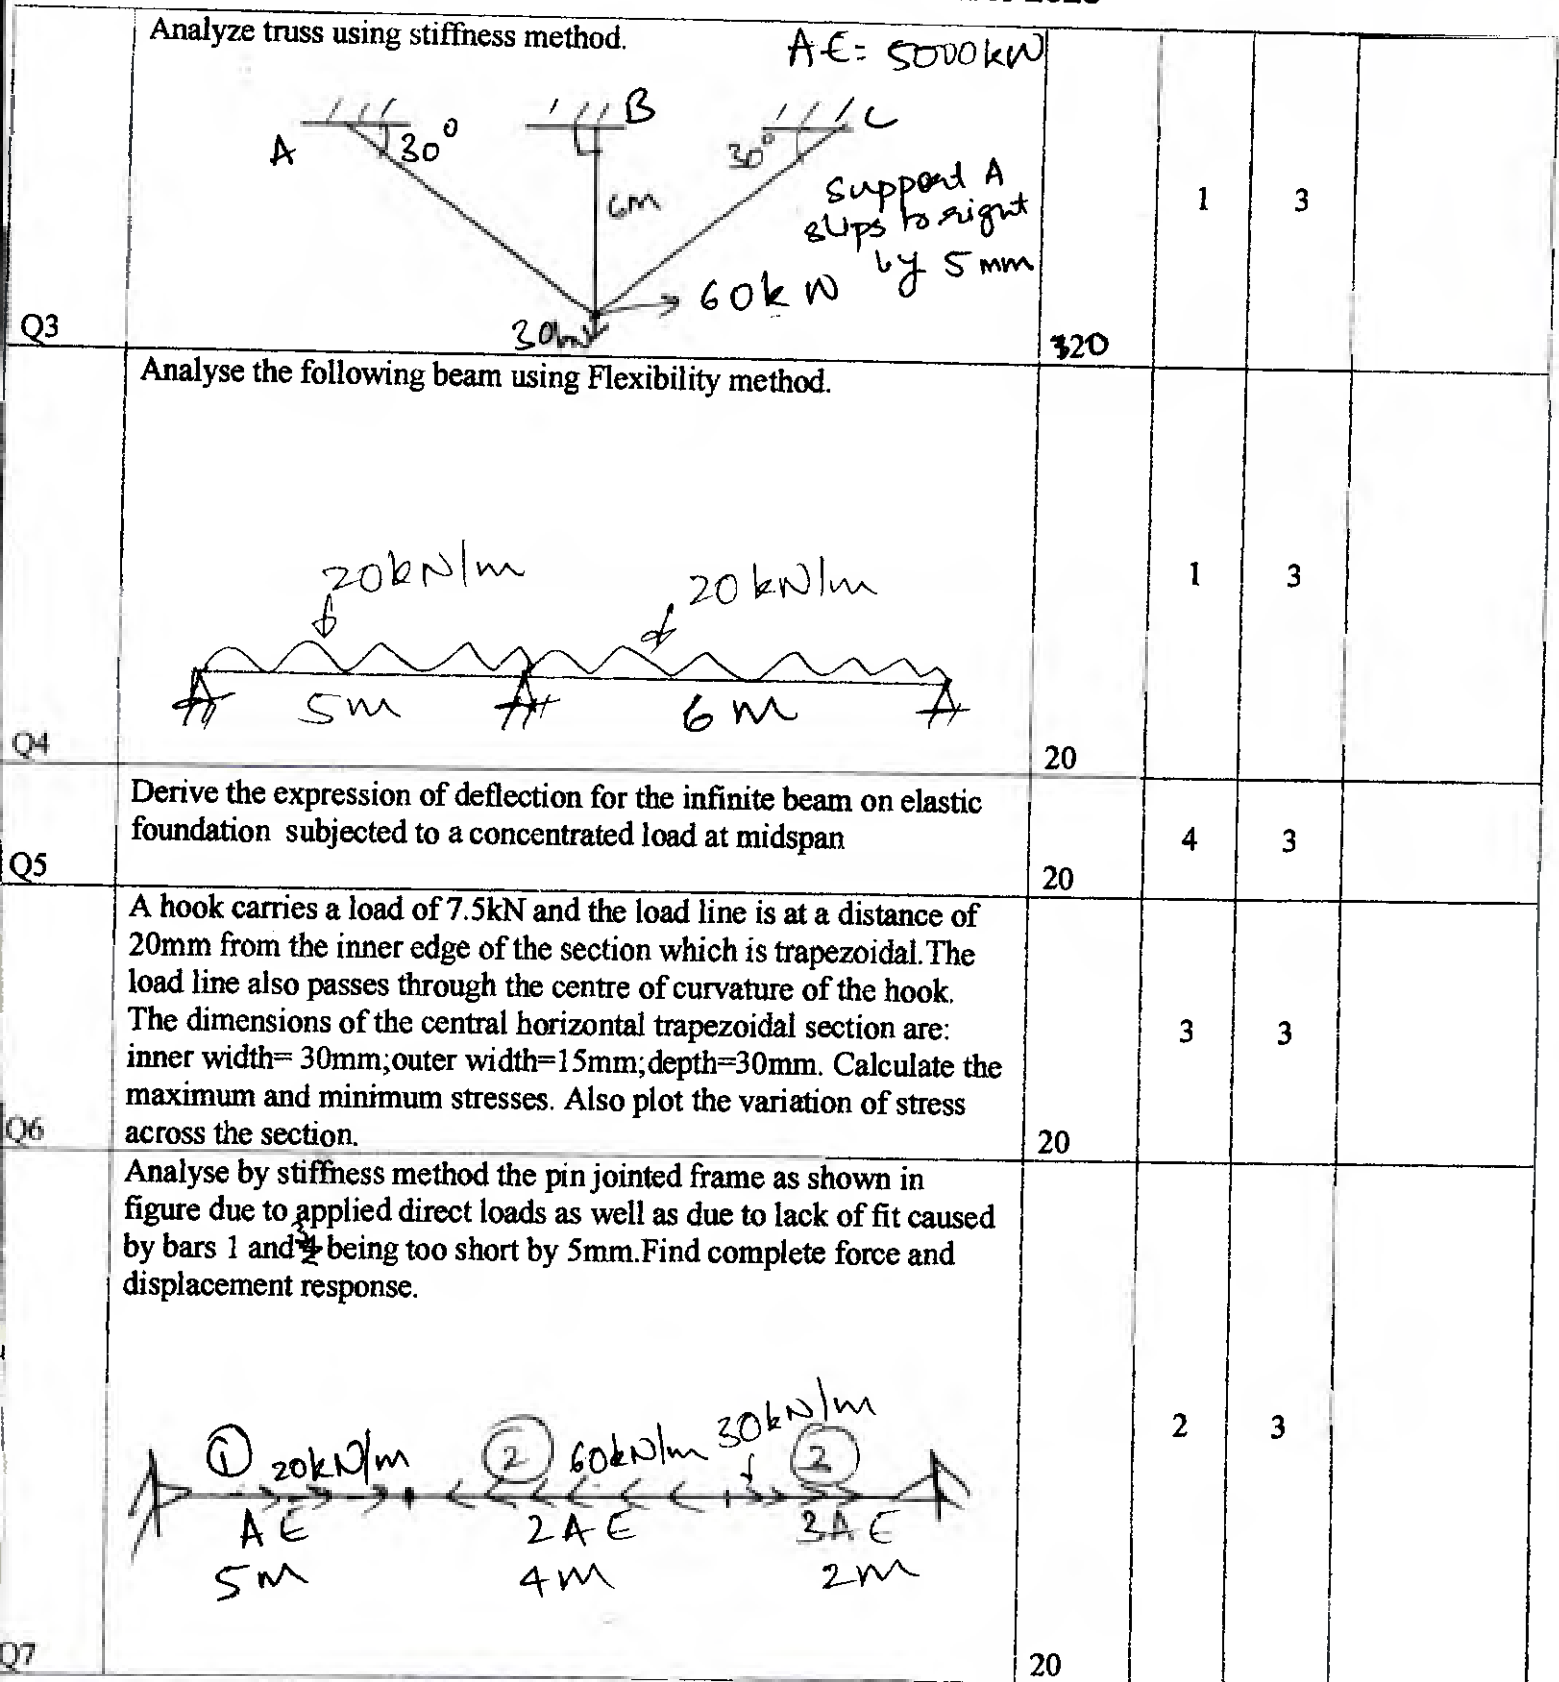 Analyze truss using stiffness method.
AE = 5000kN
A
30°
B
30°
C
6m
Support A
slips to right
by 5 mm
60kN
1
3
Q3
320
Analyse the following beam using Flexibility method.
20kN/m
20kN/m
1
3
5m
6m
Q4
20
Derive the expression of deflection for the infinite beam on elastic
foundation subjected to a concentrated load at midspan
4
3
Q5
20
A hook carries a load of 7.5kN and the load line is at a distance of
20mm from the inner edge of the section which is trapezoidal.The
load line also passes through the centre of curvature of the hook.
The dimensions of the central horizontal trapezoidal section are:
inner width= 30mm;outer width=15mm;depth=30mm. Calculate the
maximum and minimum stresses. Also plot the variation of stress
across the section.
3
3
Q6
20
Analyse by stiffness method the pin jointed frame as shown in
figure due to applied direct loads as well as due to lack of fit caused
by bars 1 and 3 being too short by 5mm.Find complete force and
displacement response.
1 20kN/m
2 60kN/m
30kN/m
2
AE
2AE
3AE
5m
4m
2m
2
3
Q7
20